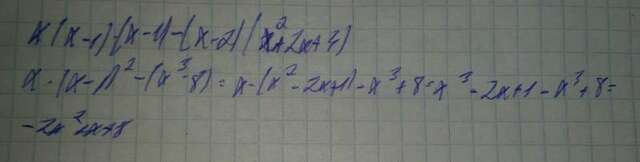 x(x-1)(x-1)-(x-2)(x²+2x+4)
x·(x-1)²-(x³-8)=x·(x²-2x+1)-x³+8=x³-2x+1-x³+8=
-2x²+x+8